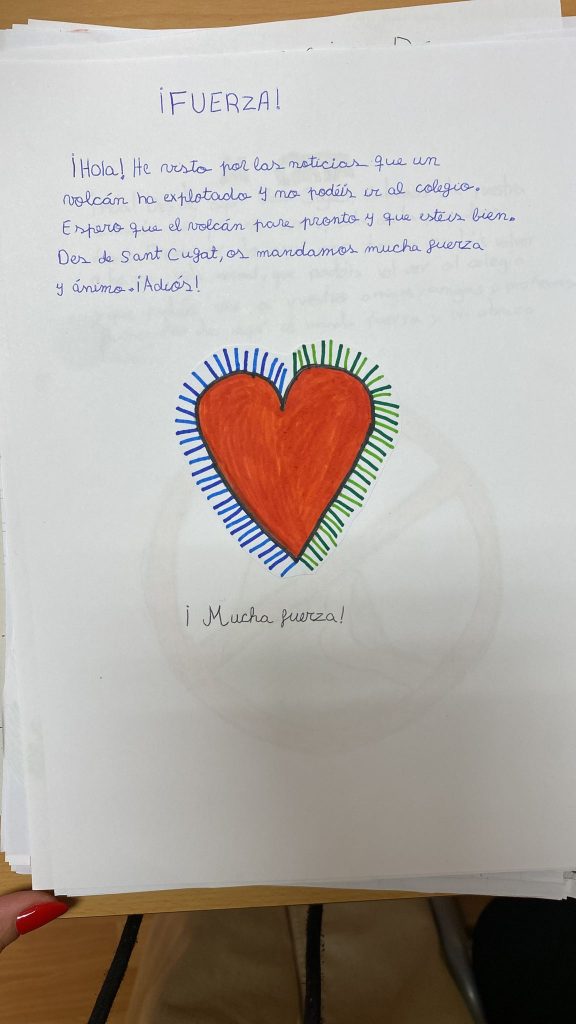 ¡FUERZA!
¡Hola! He visto por las noticias que un
volcán ha explotado y no podéis ir al colegio.
Espero que el volcán pare pronto y que esteis bien.
Des de Sant Cugat, os mandamos mucha fuerza
y ánimo. ¡Adiós!
¡Mucha fuerza!